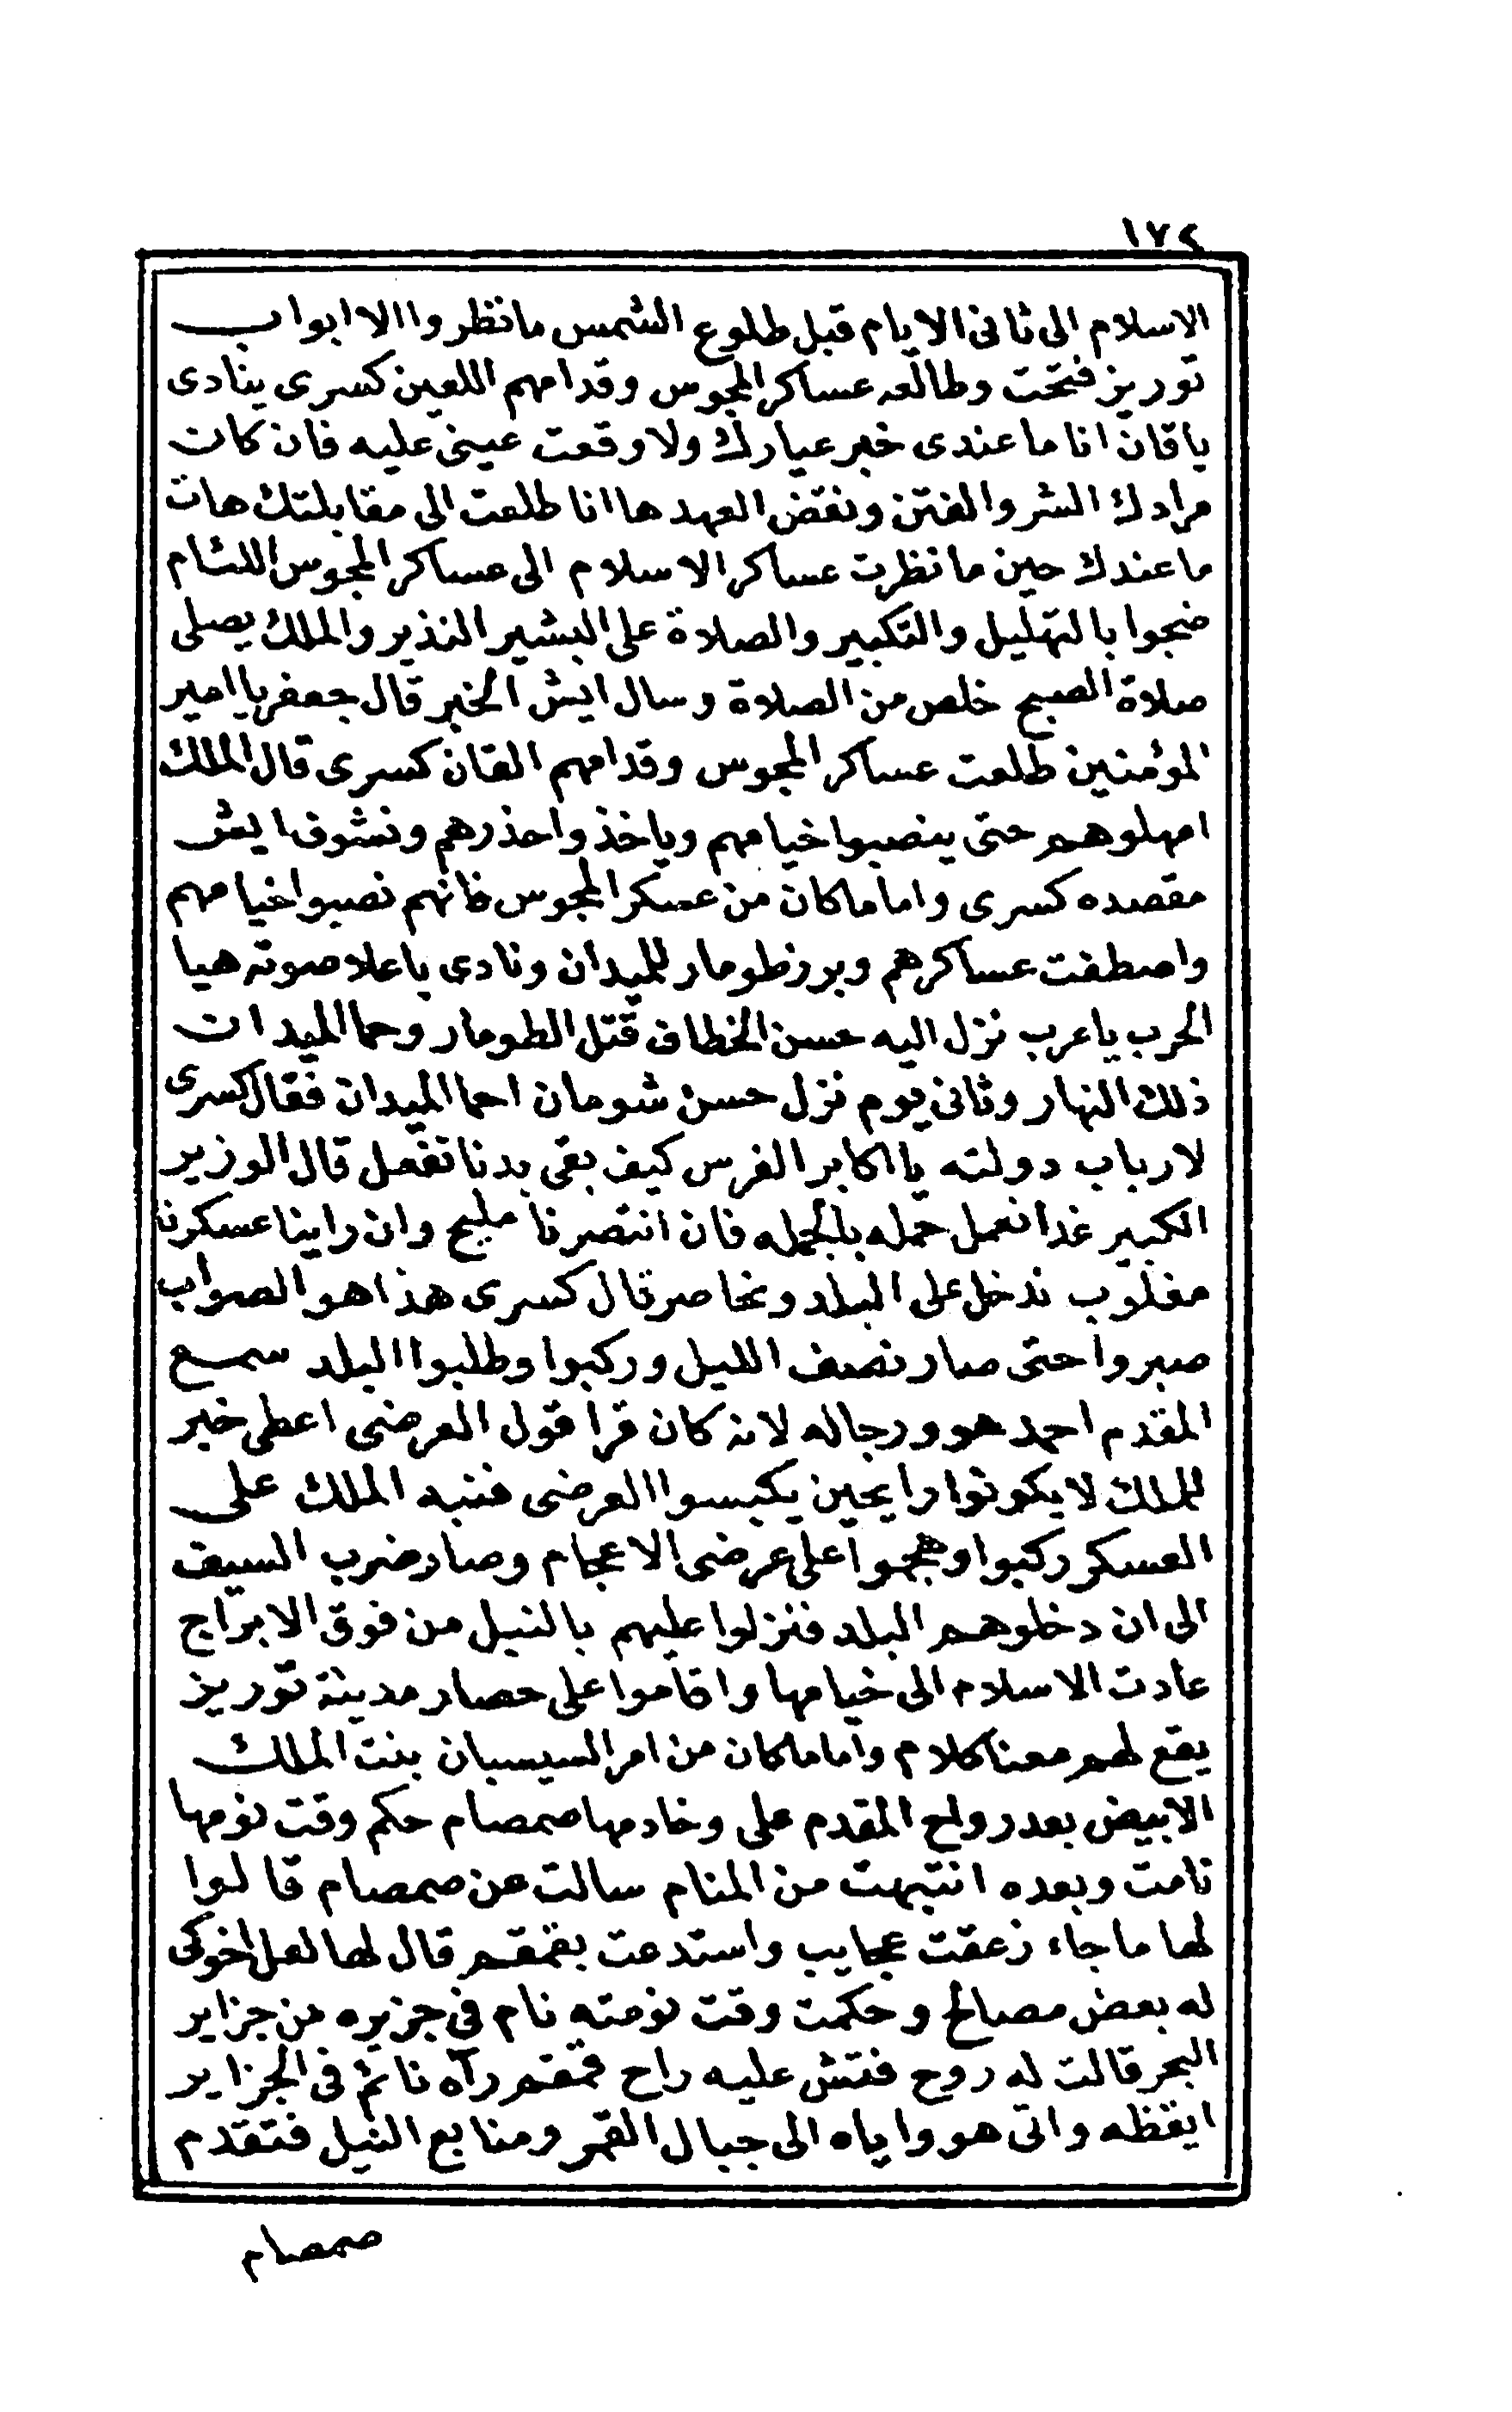 ١٧٤
الاسلام الى ثانى الايام قبل طلوع الشمس ما نظروا الا ابواب
توريز فتحت وطالعه عساكر المجوس وقدامهم اللعين كسرى ينادى
ياقان انا ما عندى خبر عيارك ولا وقعت عينى عليه فان كان
مرادك الشر والفتن ونقض العهد ها انا طلعت الى مقابلتك هات
ما عندك حين ما نظرت عساكر الاسلام الى عساكر المجوس اللئام
ضجوا بالتهليل والتكبير والصلاة على البشير النذير والملك يصلى
صلاة الصبح خلص من الصلاة وسال ايش الخبر قال جعفر يا امير
المؤمنين طلعت عساكر المجوس وقدامهم القان كسرى قال الملك
امهلوهم حتى ينصبوا خيامهم وياخذوا حذرهم ونشوف ايش
مقصده كسرى واما ما كان من عسكر المجوس فانهم نصبوا خيامهم
واصطفت عساكرهم وبرز طومار للميدان ونادى باعلا صوته هيا
الحرب يا عرب نزل اليه حسن الخطاف قتل الطومار وحما الميدان
ذلك النهار وثانى يوم نزل حسن شومان احما الميدان فقال كسرى
لارباب دولته يا اكابر الفرس كيف بقى بدنا نفعل قال الوزير
الكبير غدا نعمل حمله بالجمله فان انتصرنا مليح وان راينا عسكرنا
مغلوب ندخل على البلد ونحاصر قال كسرى هذا هو الصواب
صبروا حتى صار نصف الليل وركبوا وطلبوا البلد سمع
المقدم احمد هو ورجاله لانه كان قرا قول العرضى اعطى خبر
للملك لا يكونوا رايحين يكبسوا العرضى فنبه الملك على
العسكر ركبوا وهجموا على عرضى الاعجام وصار ضرب السيف
الى ان دخلوهم البلد فنزلوا عليهم بالنبل من فوق الابراج
عادت الاسلام الى خيامها واقاموا على حصار مدينة توريز
يقع لهم معنا كلام واما ما كان من امر السيسبان بنت الملك
الابيض بعد رواح المقدم على وخادمها صمصام حكم وقت نومها
نامت وبعده انتبهت من المنام سالت عن صمصام قالوا
لها ما جاء زعقت عجايب واستدعت بقمقم قال لها لعل اخوكى
له بعض مصالح وحكمت وقت نومته نام فى جزيره من جزاير
البحر قالت له روح فتش عليه راح قمقم رآه نائم فى الجزاير
ايقظه واتى هو واياه الى جبال القمر ومنابع النيل فتقدم
صمصام